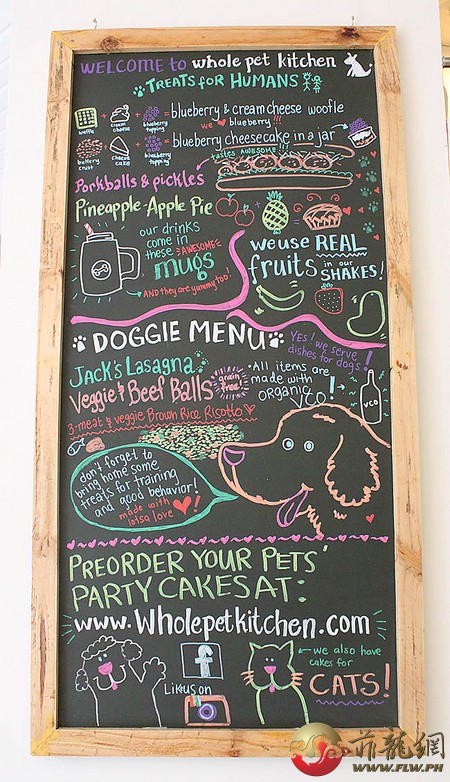 WELCOME to whole pet kitchen
TREATS FOR HUMANS
waffle + cream cheese + blueberry topping = blueberry & creamcheese woofle
we blueberry!!!
buttery crust + cheese cake + blueberry topping = blueberry cheesecake in a jar
tastes AWESOME!!!
Porkballs & pickles
Pineapple-Apple Pie
our drinks
come in
these AWESOME
mugs
AND they are yummy too!
we use REAL
fruits in our
SHAKES!
DOGGIE MENU
YES! we serve
dishes for dogs!
Jack's Lasagna
Veggie & Beef Balls
grain free
3-meat & veggie Brown Rice Risotto
• All items are
made with
organic VCO!
VCO
don't forget to
bring home some
treats for training
and good behavior!
made with
lotsa love !
PREORDER YOUR PETS'
PARTY CAKES AT:
www.Wholepetkitchen.com
f
Like us on
we also have
cakes for
CATS!
菲龍網
WWW.FLW.PH